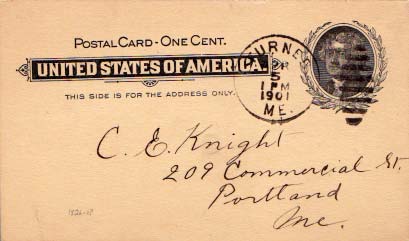 POSTAL CARD - ONE CENT.
UNITED STATES OF AMERICA.
THIS SIDE IS FOR THE ADDRESS ONLY.
5
1 PM
1901
ME.
C. E. Knight
209 Commercial St.
Portland
Me.